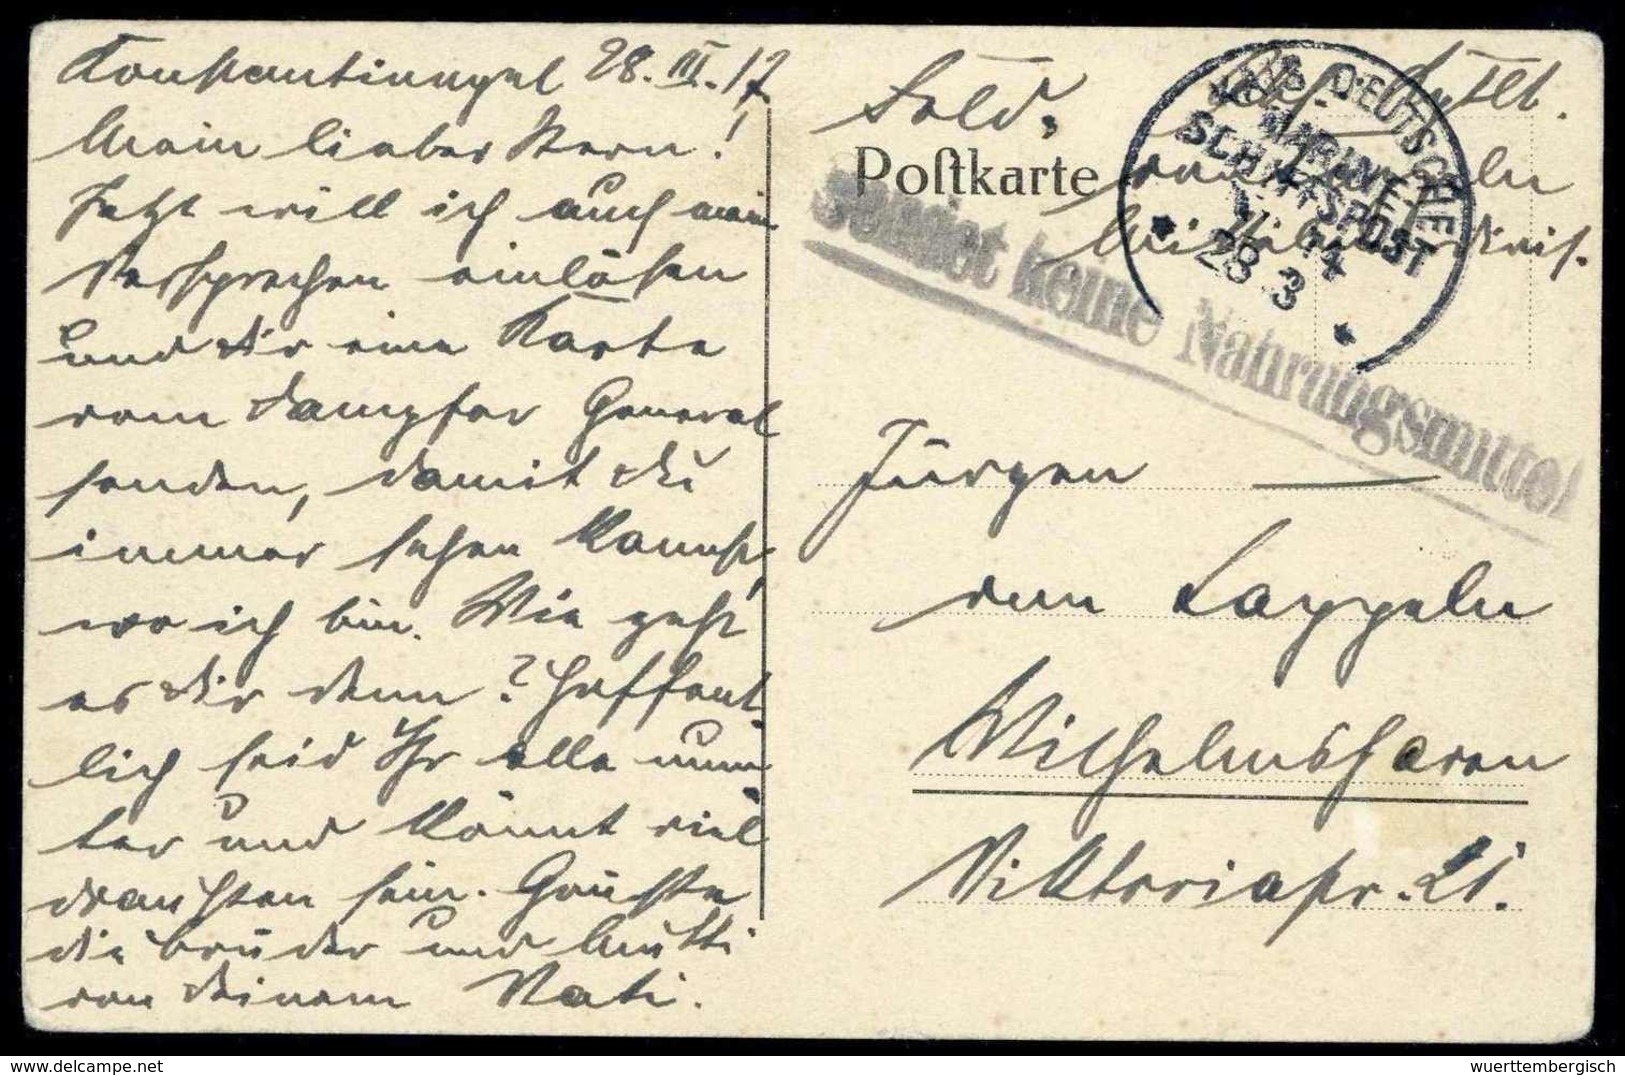 Konstantinopel 28. III. 17.
Mein lieber Stern!
Jetzt will ich auch mein
Versprechen einlösen
und Dir eine Karte
vom Dampfer General
senden, damit Du
immer sehen kannst,
wo ich bin. Wie geht
es Dir denn? Hoffent-
lich seid Ihr alle mun-
ter und könnt viel
draußen sein. Grüße
die Brüder und Mutti
von Deinem Vati.
Postkarte
DEUTSCHE
MARINE
SCHIFFSPOST
28 3
Sendet keine Nahrungsmittel
Jürgen
von Cappeln
Wilhelmshaven
Viktoriastr. 21.
wuerttembergisch